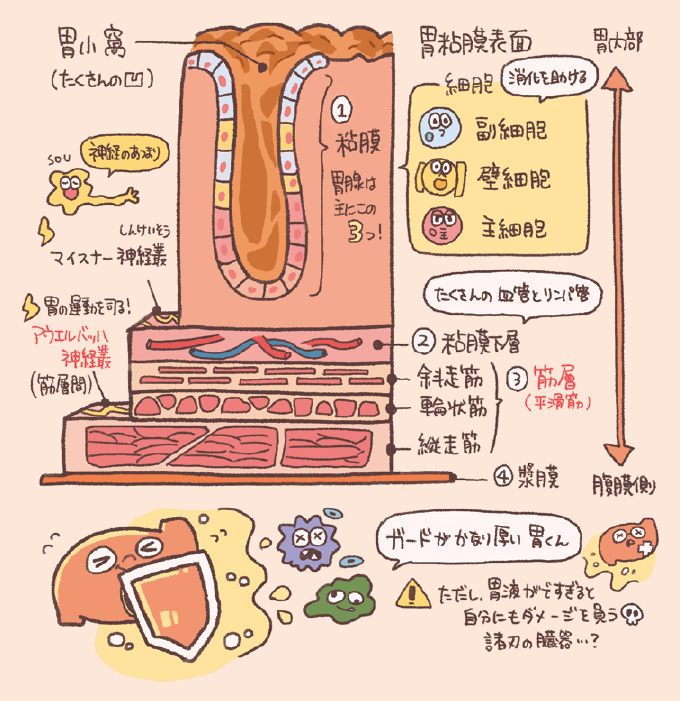 胃小窩
(たくさんの凹)
胃粘膜表面
胃内部
細胞
消化を助ける
副細胞
壁細胞
主細胞
主
① 粘膜
胃腺は
主にこの
3つ!
sou
神経のあつまり
しんけいそう
マイスナー神経叢
胃の運動を司る!
アウエルバッハ
神経叢
(筋層間)
たくさんの血管とリンパ管
② 粘膜下層
斜走筋
輪状筋
縦走筋
③ 筋層
(平滑筋)
④ 漿膜
腹膜側
ガードがかなり厚い胃くん
ただし、胃液がですぎると
自分にもダメージを負う
諸刃の臓器…?